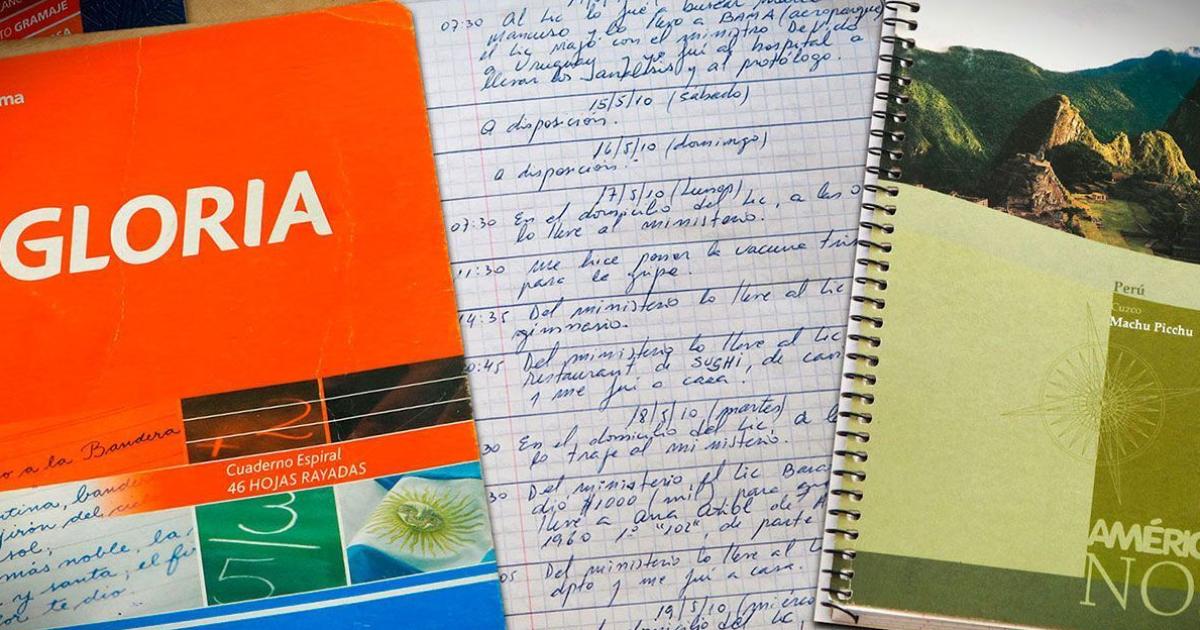 GRAMAJE
ma
GLORIA
o a la Bandera
Cuaderno Espiral
46 HOJAS RAYADAS
sol;
más noble, la
y santa; el
te dio.
5/3
07:30 Al Lic lo fué a buscar
Mancuso y lo llevo a BAMA (aeroparque)
el Lic viajó con el ministro De Vido
a Uruguay y yo fuí al hospital a
llevar los análisis y al protólogo.
15/5/10 (sábado)
A disposición.
16/5/10 (domingo)
a disposición.
17/5/10 (Lunes)
07:30 En el domicilio del Lic, a las 0
lo lleve al ministerio.
11:30 me hice poner la vacuna tri
para la gripe.
14:35 Del ministerio lo lleve al Lic
gimnasio.
0:45 Del ministerio lo lleve al Lic
restaurant de SUSHI, de
y me fui a casa.
18/5/10 (martes)
30 En el domicilio del Lic, a l
lo traje al ministerio.
30 Del ministerio, el Lic Bara
dió $1000 (mil) para
lleve a Ana de A
1960 1º "102", de parte
05 Del ministerio lo lleve al L
dpto y me fui a casa.
19/5/10 (mierco
domicilio del Lic,
Perú
Cuzco
Machu Picchu
AMÉRIC
NO